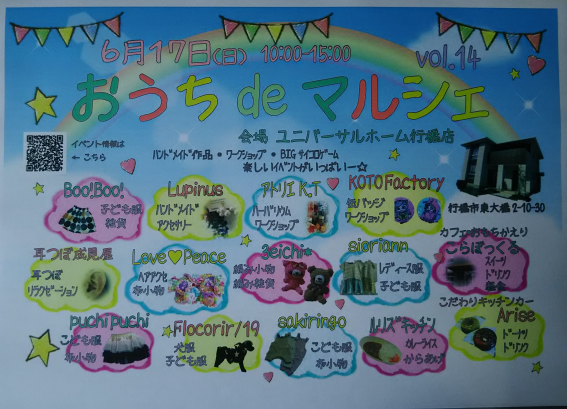 6月17日(日) 10:00-15:00 vol.14
おうち de マルシェ
会場 ユニバーサルホーム行橋店
イベント情報は
← こちら
ハンドメイド作品 ・ ワークショップ ・ BIG サイコロゲーム
楽しいイベントがいっぱいー☆
行橋市東大橋 2-10-30
Boo!Boo!
子ども服
雑貨
Lupinus
ハンドメイド
アクセサリー
アトリエ K.T
ハーバリウム
ワークショップ
KOTO Factory
缶バッジ
ワークショップ
耳つぼ
リラクゼーション
Love♥Peace
ヘアアクセ
布小物
3eichi*
編み小物
編み雑貨
sioriann
レディース服
子ども服
カフェおもちかえり
こらぼっくる
スイーツ
ドリンク
軽食
puchi puchi
こども服
布小物
Flocorir/19
犬服
子ども服
sakiringo
こども服
布小物
ルリズキッチン
カレーライス
からあげ
こだわりキッチンカー
Arise
ドーナツ
ドリンク